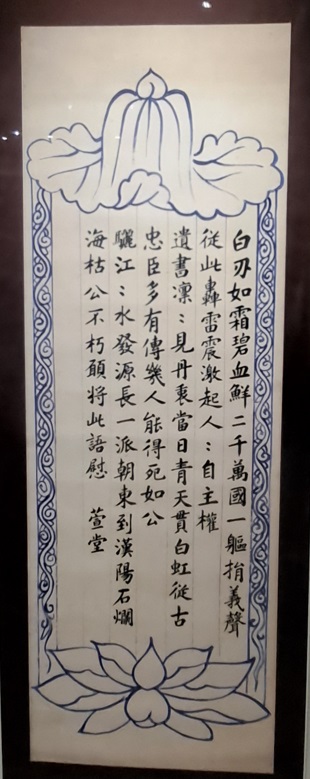 白刃如霜碧血鮮二千萬國一軀捐義聲
從此轟雷震激起人〻自主權
遺書凜〻見丹衷當日青天貫白虹從古
忠臣多有傳幾人能得死如公
驪江〻水發源長一派朝東到漢陽石爛
海枯公不朽願將此語慰 萱堂